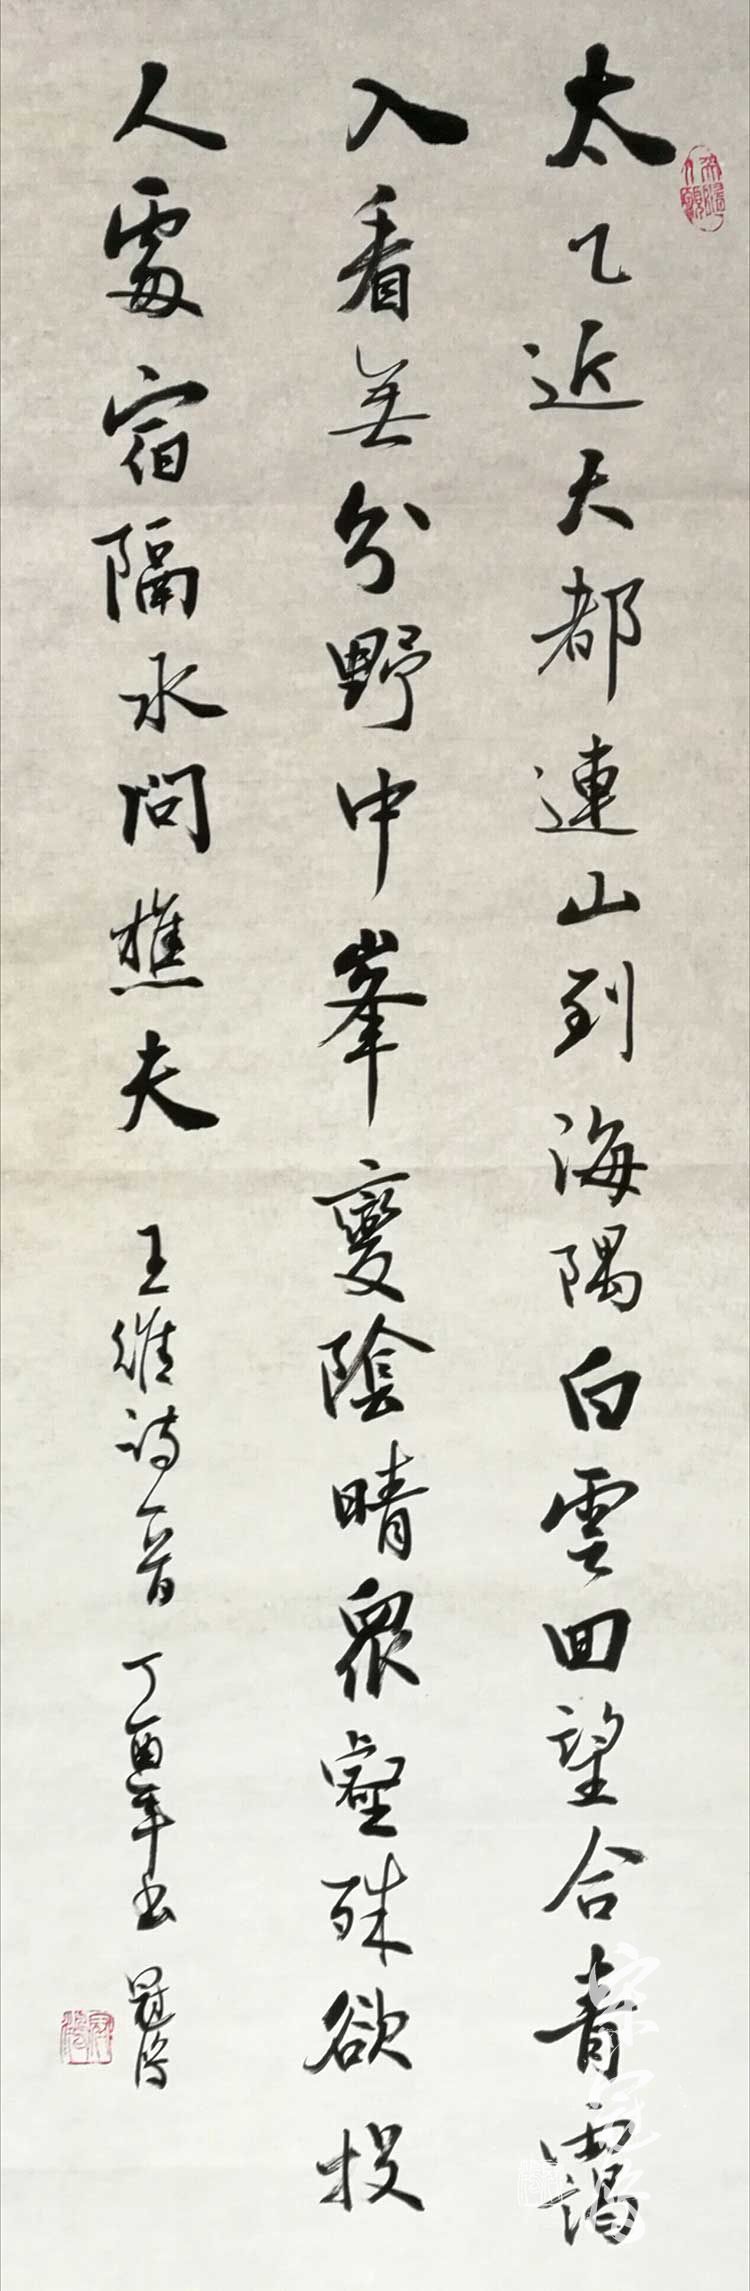 太乙近天都連山到海隅白雲回望合青靄
入看無分野中峯變陰晴眾壑殊欲投
人處宿隔水問樵夫 王維詩一首 丁酉年書